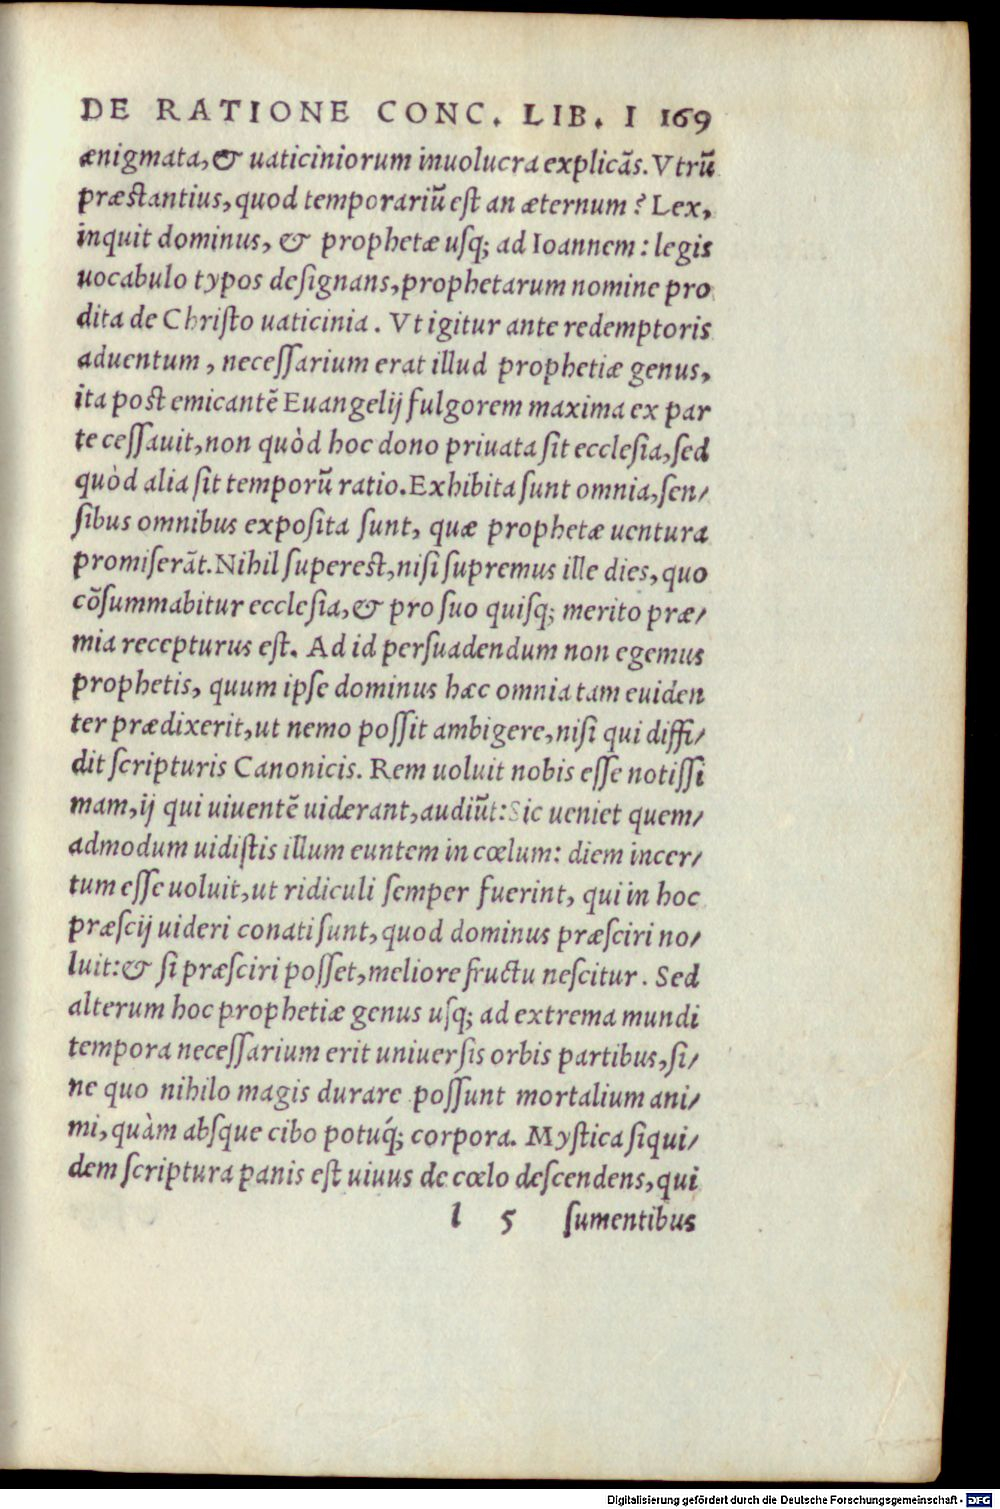 DE RATIONE CONC. LIB. I 169
ænigmata, & uaticiniorum inuolucra explicãs. Vtrũ
præstantius, quod temporariũ est an æternum? Lex,
inquit dominus, & prophetæ usq; ad Ioannem: legis
uocabulo typos deſignans, prophetarum nomine pro
dita de Chriſto uaticinia. Vt igitur ante redemptoris
aduentum, neceſſarium erat illud prophetiæ genus,
ita post emicantẽ Euangelij fulgorem maxima ex par
te ceſſauit, non quòd hoc dono priuata ſit eccleſia, ſed
quòd alia ſit temporũ ratio. Exhibita ſunt omnia, ſen/
ſibus omnibus expoſita ſunt, quæ prophetæ uentura
promiſerãt. Nihil ſuperest, niſi ſupremus ille dies, quo
cõſummabitur eccleſia, & pro ſuo quiſq; merito præ/
mia recepturus eſt. Ad id perſuadendum non egemus
prophetis, quum ipſe dominus hæc omnia tam euiden
ter prædixerit, ut nemo poſſit ambigere, niſi qui diffi/
dit ſcripturis Canonicis. Rem uoluit nobis eſſe notiſſi
mam, ij qui uiuentẽ uiderant, audiũt: Sic ueniet quem/
admodum uidiſtis illum euntem in cœlum: diem incer/
tum eſſe uoluit, ut ridiculi ſemper fuerint, qui in hoc
præſcij uideri conati ſunt, quod dominus præſciri no/
luit: & ſi præſciri poſſet, meliore fructu neſcitur. Sed
alterum hoc prophetiæ genus uſq; ad extrema mundi
tempora neceſſarium erit uniuerſis orbis partibus, ſi/
ne quo nihilo magis durare poſſunt mortalium ani/
mi, quàm abſque cibo potuq́; corpora. Myſtica ſiqui/
dem ſcriptura panis eſt uiuus de cœlo deſcendens, qui
l 5 ſumentibus
Digitalisierung gefördert durch die Deutsche Forschungsgemeinschaft - DFG